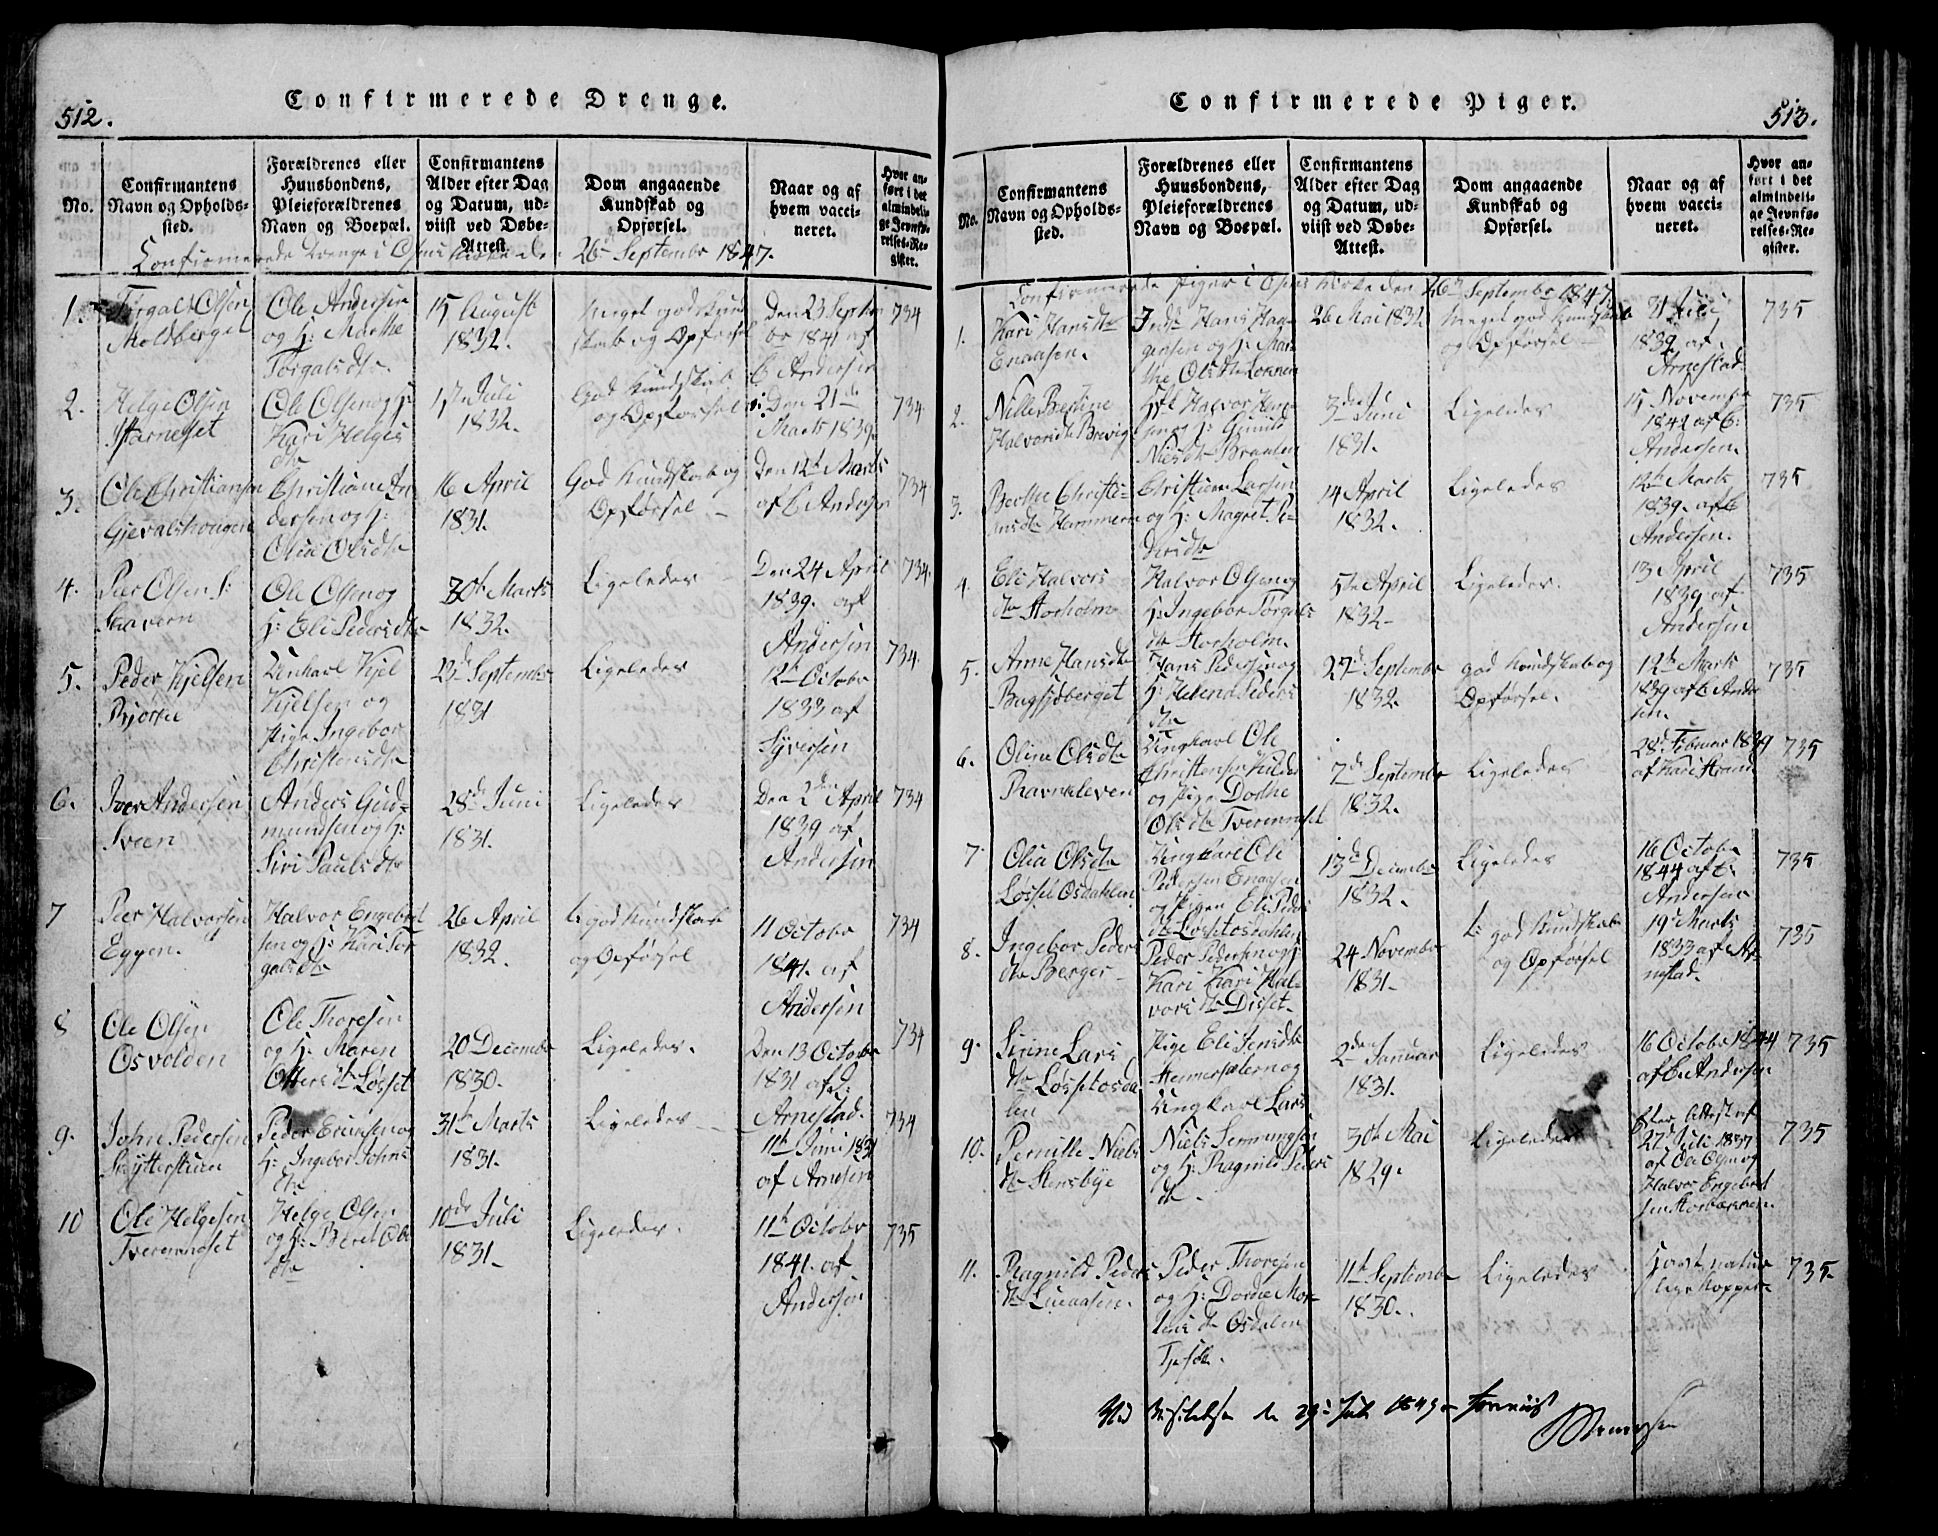 512.
Confirmerede Drenge.
No.
Confirmantens
Navn og Opholds-
sted.
Forældrenes eller
Huusbondens,
Pleieforældrenes
Navn og Boepæl.
Confirmantens
Alder efter Dag
og Datum, ud-
viist ved Døbe-
Attest.
Dom angaaende
Kundskab og
Opførsel.
Naar og af
hvem vacci-
neret.
Hvor an-
ført i det
almindeli-
ge Jevnfø-
relses-Re-
gister.
Confirmerede Drenge i Osens Kirke den 26de September 1847.
1.
Torgals Olsen
Moldberget
Ole Andersen
og H: Marthe
Torgalsdtr
15 August
1832.
Meget god Kund
skab og Opførsel
Den 23 Septem
br 1841 af
C Andersen
734
2.
Helge Olsen
Ole Olsen og H:
Kari Helges
dtr
Juli
1832.
God Kundskab
og Opførsel
Den 21de
Marts 1839
734
3.
Ole Christiansen
Gjevalshougen
Christian An
dersen og H:
Olia Olsdtr
16 April
1831.
God Kundskab og
Opførsel
Den 12te Marts
af C Andersen
734
4.
Peer Olsen S:
Ole Olsen og
H: Eli Pedersdtr
30te Marts
1832.
Ligeledes
Den 24 April
1839. af
Andersen
734.
5.
Peder Kjelsen
Ungkarl Kjel
Kjelsen og
Pige Ingebor
Christensdtr
23de September
1831
Ligeledes
12te Octobr
1833 af
Syversen
734
6.
Iver Andersen
Sveen
Anders Gud-
mundsen og H:
Siri Paulsdtr
28de Juni
1831.
Ligeledes
Den 2den April
1839 af
Andersen
734
7
Peer Halvorsen
Eggen.
Halvor Engebret
sen og H: Kari Tor
galsdtr
26 April
1832.
god Kundskab
og Opførsel
11 Octobr
1841. af
Andersen
734
8
Ole Olsen
Osvolden
Ole Thoresen
og H: Maren
Ottersdtr Løsset
20 Decembr
1830.
Ligeledes.
Den 13 Octobr
1831 af
Arnestad.
734
9.
John Pedersen
Skytterstuen
Peder Ericksen og
H: Ingebor Johns
dtr
31te Marts
1831.
Ligeledes
11te Juni 1831
af Arnesen
734
10
Ole Helgesen
Tverennset
Helge Olsen
og H: Beret Ols
dtr
10de Juli
1831.
Ligeledes.
11te Octobr
1841. af
Andersen
735
513.
Confirmerede Piger.
No.
Confirmantens
Navn og Opholds-
sted.
Forældrenes eller
Huusbondens,
Pleieforældrenes
Navn og Boepæl.
Confirmantens
Alder efter Dag
og Datum, ud-
viist ved Døbe-
Attest.
Dom angaaende
Kundskab og
Opførsel.
Naar og af
hvem vacci-
neret.
Hvor an-
ført i det
almindeli-
ge Jevnfø-
relses-Re-
gister.
Confirmerede Piger i Osens Kirke den 26de September 1847.
1.
Kari Hansdtr
Enaasen.
Inds Hans Haa-
gensen og H: Mar-
the Olsdtr
26 Mai 1832
Meget god Kundskab
og Opførsel
31 Juli
1839 af
Arnestad
735
2.
Nille Bertine
Halvorsdtr Brevig
Halvor
og H: Gunild
Nielsdtr Braaten
3de Juni
1831.
Ligeledes
15 November
1842 af C:
Andersen.
735
3.
Berthe Christi-
ansdtr Hammeren
Christian Larsen
og H: Magret Pe-
dersdtr
14 April
1832.
Ligeledes
12te Marts
1839. af C
Andersen.
735
4.
Eli Halvors
dtr Storholm
Halvor Olsen og
H: Ingebor Torgals
dtr Storholm.
5te April
1832
Ligeledes.
13 April
1839 af
Andersen
735
5.
Anne Hansdtr
Bugsjøberget
Hans Pedersen og
H: Helena Peders
dtr
27de September
1832.
god Kundskab og
Opførsel.
12te Marts
1839 af C Ander
sen.
735
6.
Oline Olsdtr
Ravnkleven
Ungkarl Ole
Christensen
og Pige Dorthe
Olsdtr Tverennset
7de Septembr
1832.
Ligeledes
28de Februar 1839
af Kari Strand
735
7.
Olia Olsdtr
Løsset Osdahlen
Ungkarl Ole
Pedersen Enaasen
og Pigen Eli Peders
dtr Løsset Osdahlen
13de Decembr
1832.
Ligeledes
16 Octobr
1844 af C:
Andersen
735
8.
Ingebor Peders
dtr Berger
Peder Pedersen og H
Kari Kari Hal-
vorsdtr Disset.
24 Novembr
1831.
god Kundskab
og Opførsel
19de Marts
1833 af Ar
nestad.
735
9.
Sinne Lars
dtr Løsset Osda
len
Pige Eli Jensdtr
og
Ungkarl Lars
2den Januar
1831.
Ligeledes
16 Octobr 1844
af C. Andersen
735
10.
Pernille Niels
dtr Stensbye
Niels Semmingsen
og H: Ragnild Peders
dtr.
30te Mai
1829.
Ligeledes
Efter Attest af
27de Juli 1837
af Ole Olsen og
Halvor Engebret
sen
735
11.
Ragnild Peders
dtr Lucaasen.
Peder Thoresen
og H: Dordie Mor-
tensdtr Osdalen
11te Septembr
1830.
Ligeledes
Havt natur
lige Kopper
735.
Ved Visitatsen den 29de Juli 1849